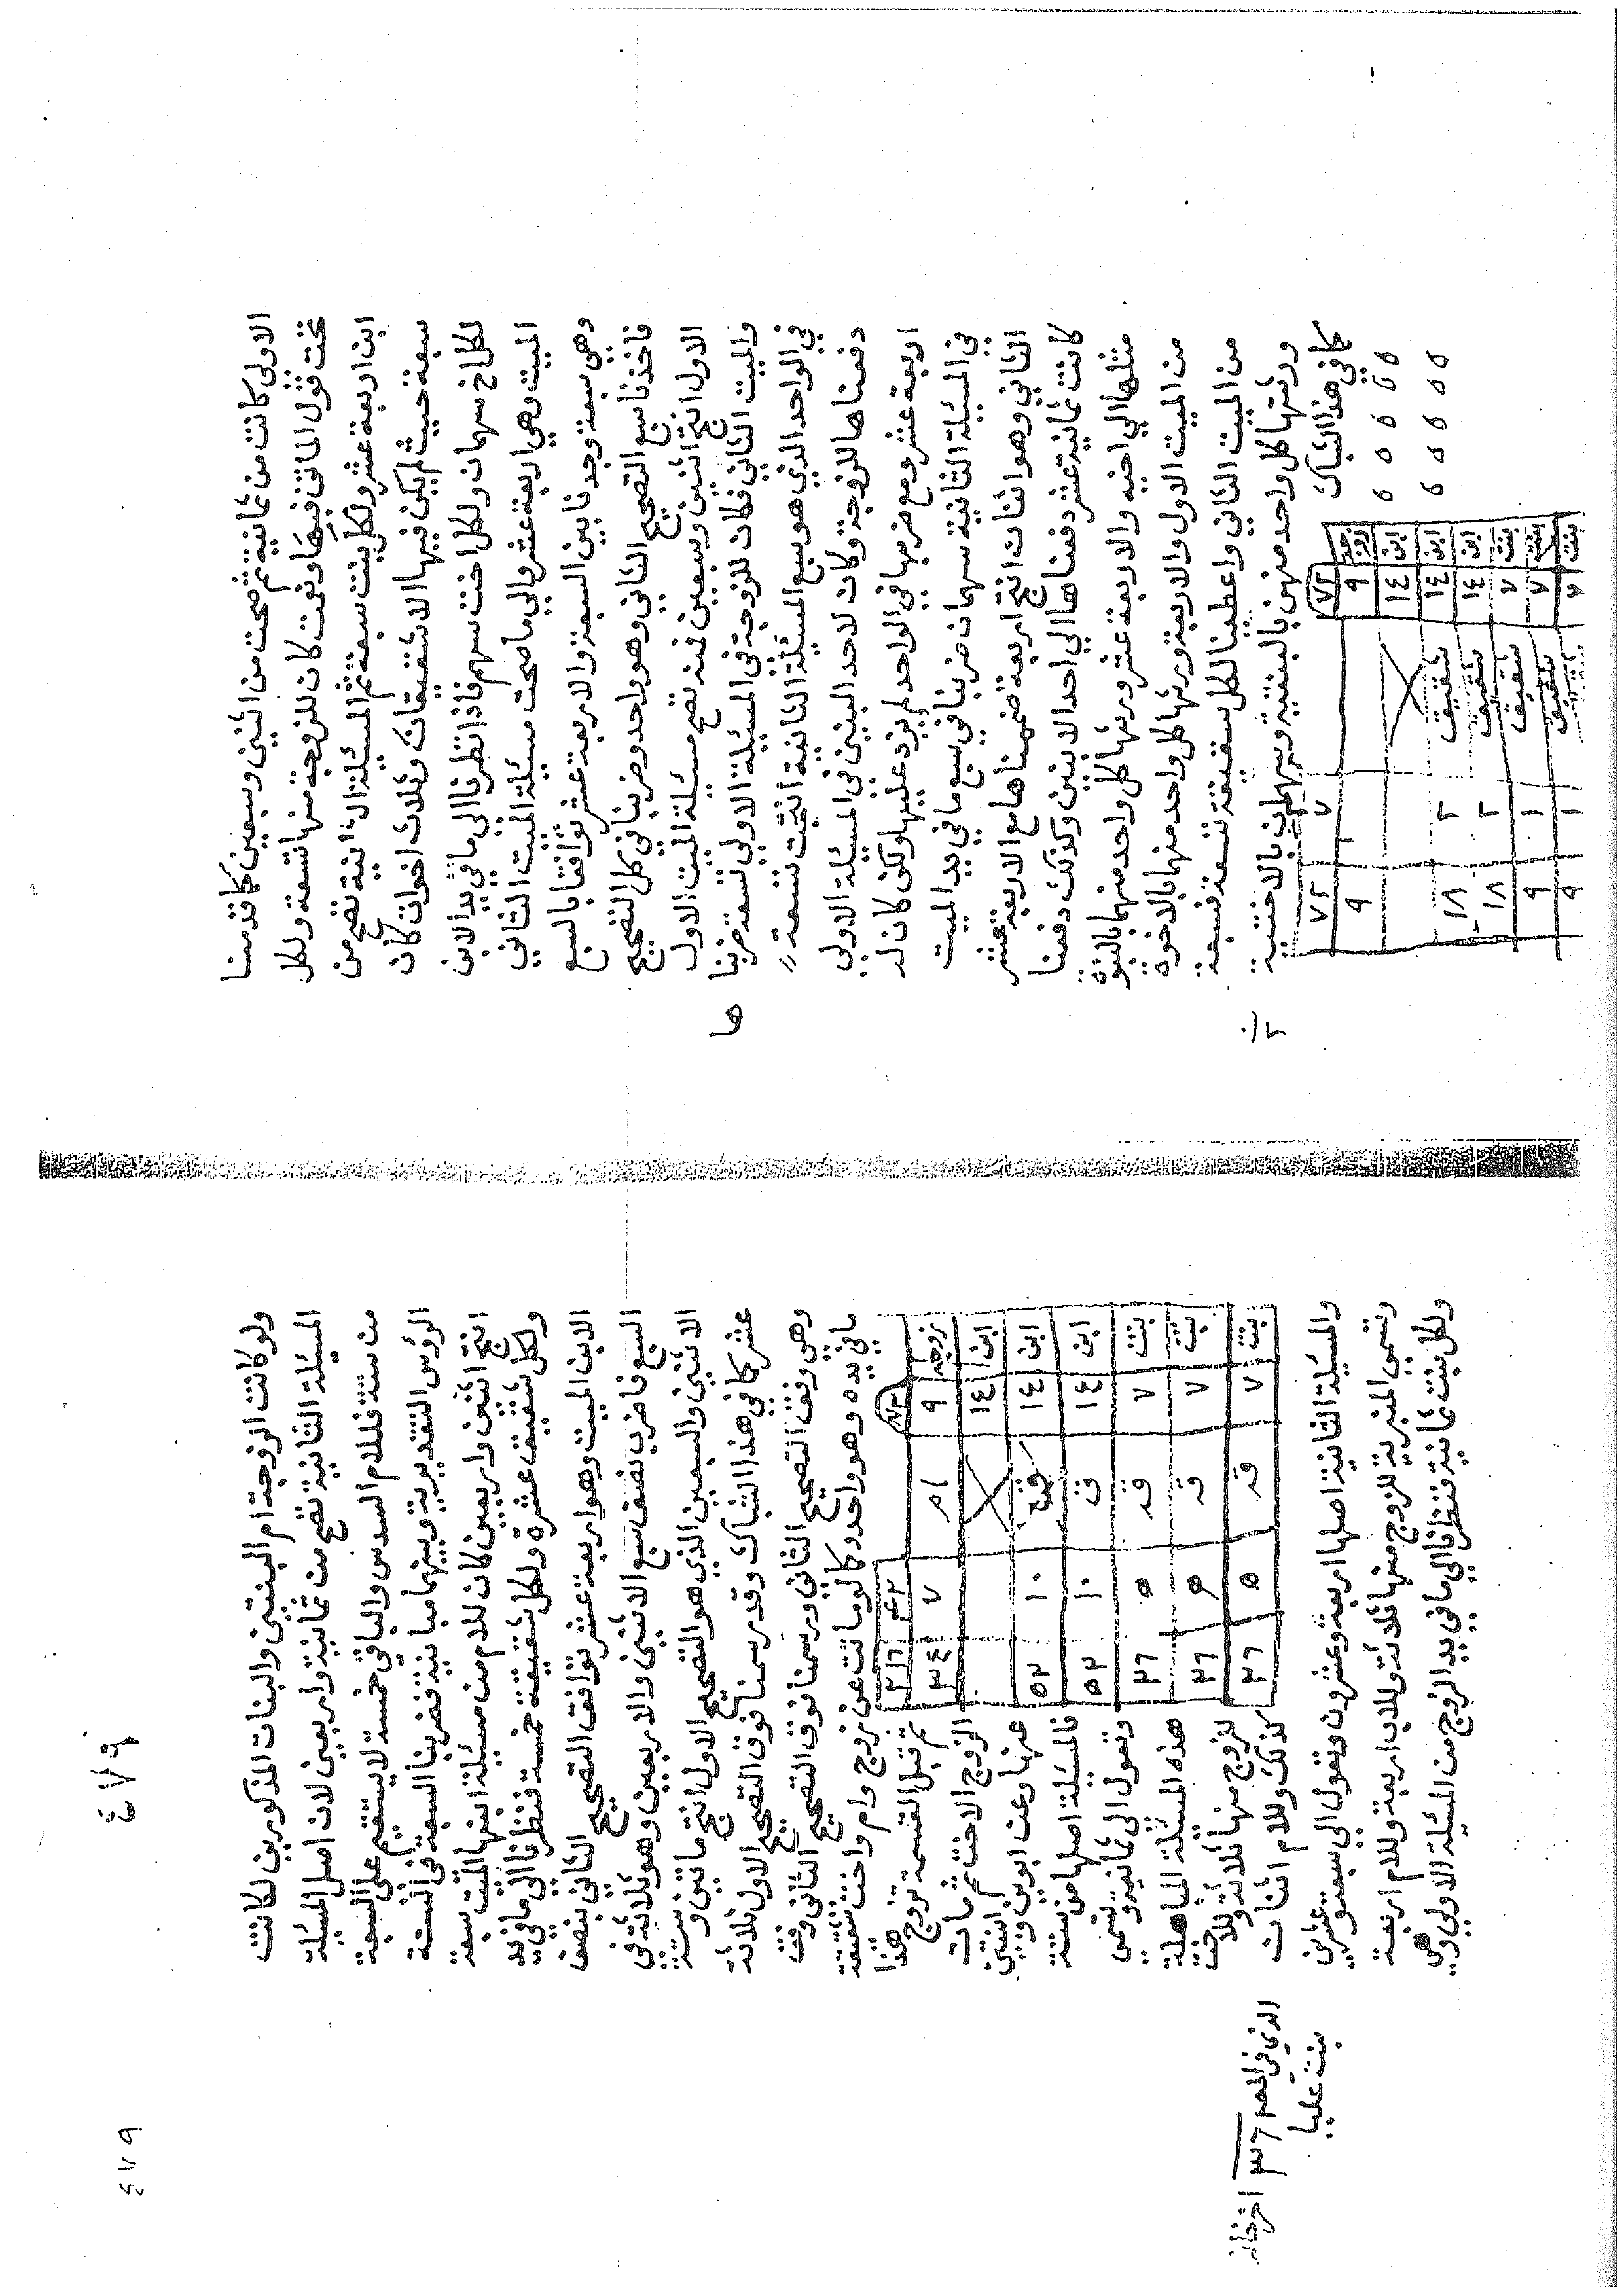 الاولى كانت من ثمانية ثم صحت من اثنين وسبعين كما قدمنا
تحت قول الماتن فيها وقمت كان للزوجة منها تسعة ولكل
ابن اربعة عشر ولكل بنت سبعة ثم المسئلة الثانية تصح من
سبعة حيث لم يكن فيها الا شقيقان وثلاث اخوات كان
لكل اخ سهمان ولكل اخت سهم فاذا نظرنا الى ما في يد الابن
الميت وهي اربعة عشر والى ما صحت مسئلة الميت الثاني
وهي سبعة وجدنا بين السبعة والاربعة عشر توافقا بالسبع
فاخذنا سبع التصحيح الثاني وهو واحد وضربنا في كل التصحيح
الاول انتج اثنين وسبعين فمنه تصح مسئلة الميت الاول
والميت الثاني فكان للزوجة في المسئلة الاولى تسعة ضربنا
ها
في الواحد الذي هو سبع المسئلة الثانية انتجت تسعة
دفعناها للزوجة وكان لاحد البنين في المسئلة الاولى
اربعة عشر ومع ضربها في الواحد لم يزد عليها ولكن كان له
في المسئلة الثانية سهمان ضربنا في سبع ما في يد الميت
الثاني وهو اثنان انتج اربعة ضممناها مع الاربعة عشر
كانت ثمانية عشر دفعناها الى احد الابنين وكذلك دفعنا
مثلها الى اخيه والاربعة عشر ورثها كل واحد منهما بالبنوة
من الميت الاول والاربعة ورثها كل واحد منهما بالاخوة
من الميت الثاني واعطينا لكل شقيقة تسعة فسبعة
ورثتها كل واحد منهن بالبنتية وسهمان بالاختية
٢/٠
كما في هذا الشباك
٧٢ ٧ ٧٢
زوجة ٩ ٩
ابن ١٤
ابن ١٤ شقيق ٢ ١٨
ابن ١٤ شقيق ٢ ١٨
بنت ٧ شقيق ١ ٩
بنت ٧ شقيق ١ ٩
بنت ٧
٤٧٩
ولو كانت الزوجة ام البنين والبنات المذكورين لكانت
المسئلة الثانية تصح من ثمانية واربعين لان اصل المسئلة
من ستة فللام السدس والباقي خمسة لا يستقيم على السبعة
الرؤس التقديرية وبينهما مباينة فضربنا السبعة في الستة
انتج اثنين واربعين كان للام من مسئلة ابنها الميت سبعة
ولكل شقيق عشرة ولكل شقيقة خمسة فنظرنا الى ما في يد
الابن الميت وهو اربعة عشر توافق التصحيح الثاني بنصف
السبع فاضرب نصف سبع الاثنين والاربعين وهو ثلاثة في
الاثنين والسبعين الذي هو التصحيح الاول انتج ماتين وستة
عشر كما في هذا الشباك وقد رسمنا فوق التصحيح الاول ثلاثة
وهي وفق التصحيح الثاني ورسمنا فوق التصحيح الثاني وفق
ما في يده وهو واحد وكما لو ماتت عن زوج وام واخت شقيقة
٧٢ ٤٢ ٢١٦
زوجة ٩ ام ٧ ٣٤
ابن ١٤
ابن ١٤ ق ١٠ ٥٢
ابن ١٤ ق ١٠ ٥٢
بنت ٧ قة ٥ ٢٦
بنت ٧ قة ٥ ٢٦
بنت ٧ قة ٥ ٢٦
ثم قبل القسمة تزوج هذا
الزوج الاخت ثم ماتت
عنها وعن ابوين وبنتين
فالمسئلة اصلها من ستة
وتعول الى ثمانية وتسمى
هذه المسئلة المباهلة
للزوج منها ثلاثة وللاخت
كذلك وللام اثنان
والمسئلة الثانية اصلها اربعة وعشرون وتعول الى سبعة وعشرين
وتسمى المنبرية للزوج منها ثلاثة وللاب اربعة وللام اربعة
ولكل بنت ثمانية فنظرنا الى ما في يد الزوج من المسئلة الاولى وهي
بنت عليا
٤٧٩